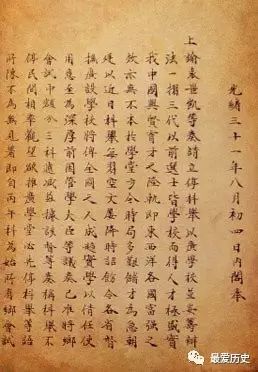 光緒三十一年八月初四日內閣奉
上諭袁世凱等奏請立停科舉以廣學校並妥籌辦
法一摺三代以前選士皆學校而得人才極盛實
我中國興賢育才之隆軌即東西洋各國富強之
效亦無不本於學堂方今時局多艱儲才為急朝
廷以近日科舉每習空文屢降時詔飭令各省督
撫廣設學校將俾全國之人咸趨實學以備任使
用意至為深厚前因管學大臣等議奏已准將鄉
會試中額分三科遞減茲據該督等奏稱科舉不
停民間相率觀望欲推廣學堂必先停科舉等語
所陳不為無見著即自丙午科為始所有鄉會試
最爱历史